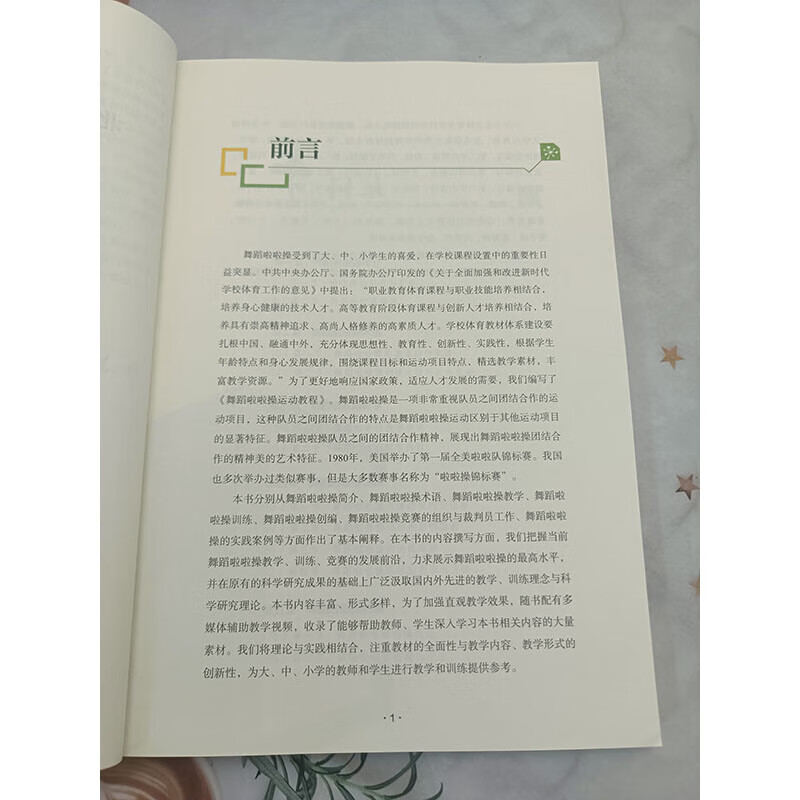 前言
舞蹈啦啦操受到了大、中、小学生的喜爱，在学校课程设置中的重要性日
益突显。中共中央办公厅、国务院办公厅印发的《关于全面加强和改进新时代
学校体育工作的意见》中提出：“职业教育体育课程与职业技能培养相结合，
培养身心健康的技术人才。高等教育阶段体育课程与创新人才培养相结合，
培养具有崇高精神追求、高尚人格修养的高素质人才。学校体育教材体系建设要
扎根中国、融通中外，充分体现思想性、教育性、创新性、实践性，根据学生
年龄特点和身心发展规律，围绕课程目标和运动项目特点，精选教学素材，丰
富教学资源。”为了更好地响应国家政策，适应人才发展的需要，我们编写了
《舞蹈啦啦操运动教程》。舞蹈啦啦操是一项非常重视队员之间团结合作的运
动项目，这种队员之间团结合作的特点是舞蹈啦啦操运动区别于其他运动项目
的显著特征。舞蹈啦啦操队员之间的团结合作精神，展现出舞蹈啦啦操团结合
作的精神美的艺术特征。1980年，美国举办了第一届全美啦啦队锦标赛。我国
也多次举办过类似赛事，但是大多数赛事名称为“啦啦操锦标赛”。
本书分别从舞蹈啦啦操简介、舞蹈啦啦操术语、舞蹈啦啦操教学、舞蹈啦
啦操训练、舞蹈啦啦操创编、舞蹈啦啦操竞赛的组织与裁判员工作、舞蹈啦啦
操的实践案例等方面作出了基本阐释。在本书的内容撰写方面，我们把握当前
舞蹈啦啦操教学、训练、竞赛的发展前沿，力求展示舞蹈啦啦操的最高水平，
并在原有的科学研究成果的基础上广泛汲取国内外先进的教学、训练理念与科
学研究理论。本书内容丰富、形式多样，为了加强直观教学效果，随书配有多
媒体辅助教学视频，收录了能够帮助教师、学生深入学习本书相关内容的大量
素材。我们将理论与实践相结合，注重教材的全面性与教学内容、教学形式的
创新性，为大、中、小学的教师和学生进行教学和训练提供参考。
· 1 ·